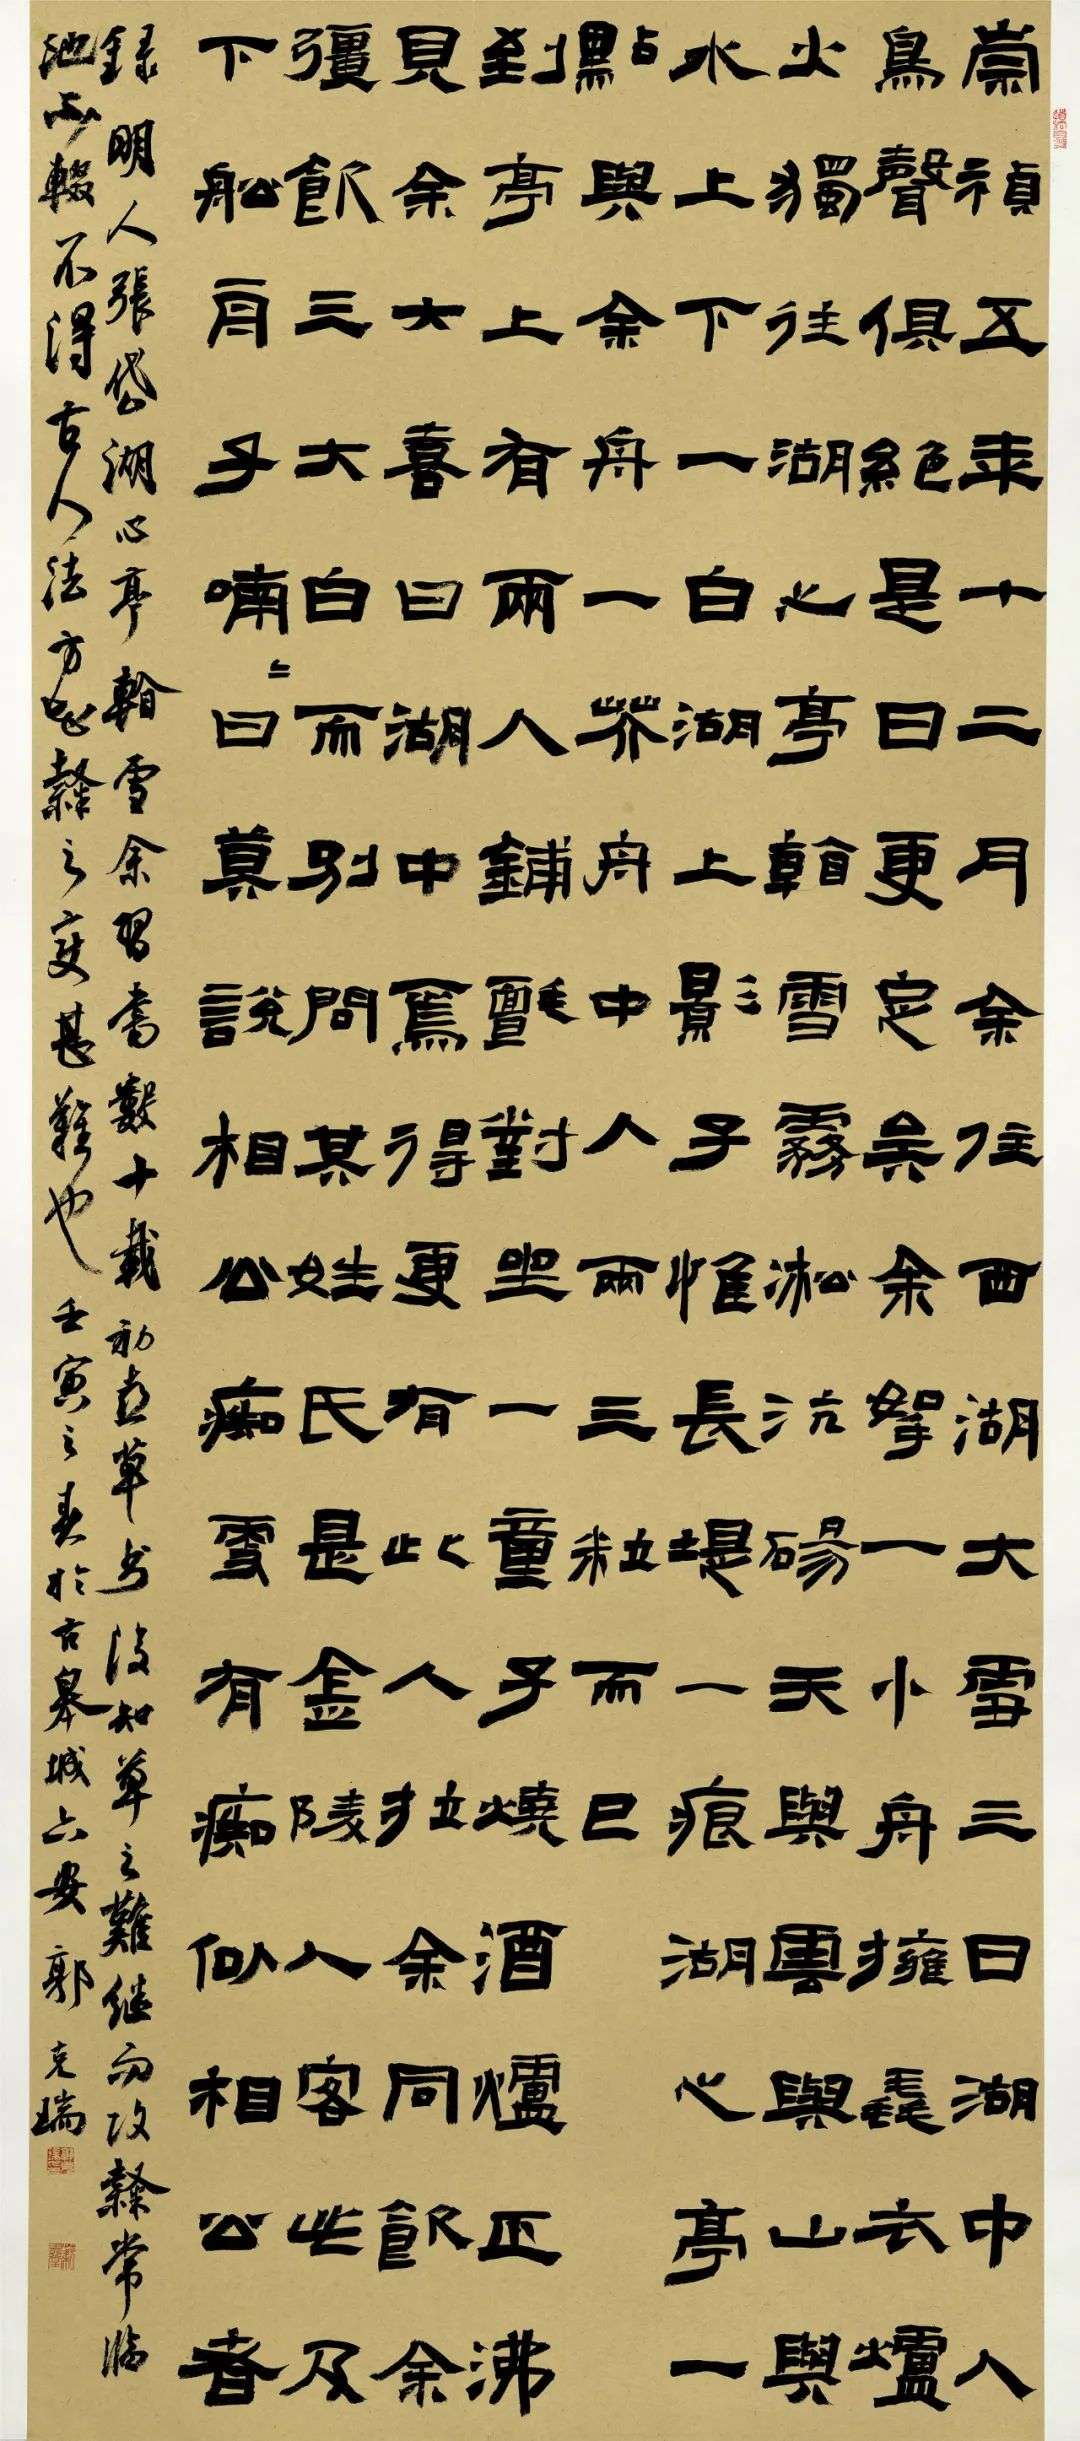 崇禎五年十二月余住西湖大雪三日湖中人
鳥聲俱絕是日更定矣余拏一小舟擁毳衣爐
火獨往湖心亭看雪霧淞沆碭天與雲與山與
水上下一白湖上影子惟長堤一痕湖心亭一
點與余舟一芥舟中人兩三粒而已
到亭上有兩人鋪氈對坐一童子燒酒爐正沸
見余大喜曰湖中焉得更有此人拉余同飲余
彊飲三大白而別問其姓氏是金陵人客此及
下船舟子喃〻曰莫說相公痴雪有痴似相公者
録明人張岱湖心亭看雪余習書數十載初喜草書後知草之難继而改隸常臨
池不輟不得古人法方知隸之变甚難也壬寅之春於古皋城六安郭克瑞